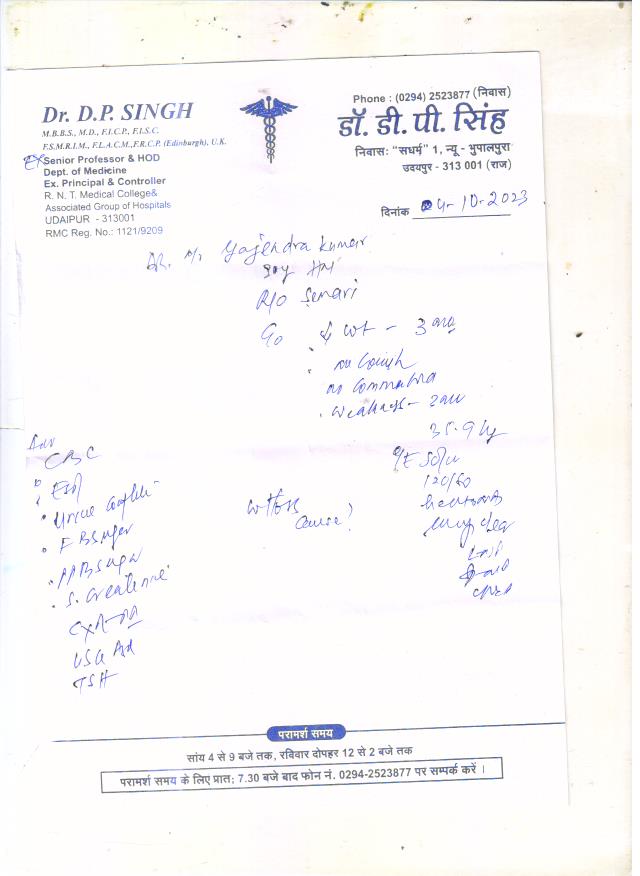 Dr. D.P. SINGH
M.B.B.S., M.D., F.I.C.P., F.I.S.C.
F.S.M.R.I.M., F.L.A.C.M., F.R.C.P. (Edinburgh), U.K.
Ex Senior Professor & HOD
Dept. of Medicine
Ex. Principal & Controller
R. N. T. Medical College&
Associated Group of Hospitals
UDAIPUR - 313001
RMC Reg. No.: 1121/9209
Phone : (0294) 2523877 (निवास)
डॉ. डी. पी. सिंह
निवासः "सधर्म" 1, न्यू - भुपालपुरा
उदयपुर - 313 001 (राज)
दिनांक 4-10-2023
Gajendra Kumar
R/o Semari
wt - 3
no cough
weakness - 2
35.9 kg
120/60
Adv
CBC
ESR
Urine
F B Sugar
PP B Sugar
S. Creatinine
CXR-PA
USG Abd
TSH
wt loss
cause?
परामर्श समय
सांय 4 से 9 बजे तक, रविवार दोपहर 12 से 2 बजे तक
परामर्श समय के लिए प्रात; 7.30 बजे बाद फोन नं. 0294-2523877 पर सम्पर्क करें ।